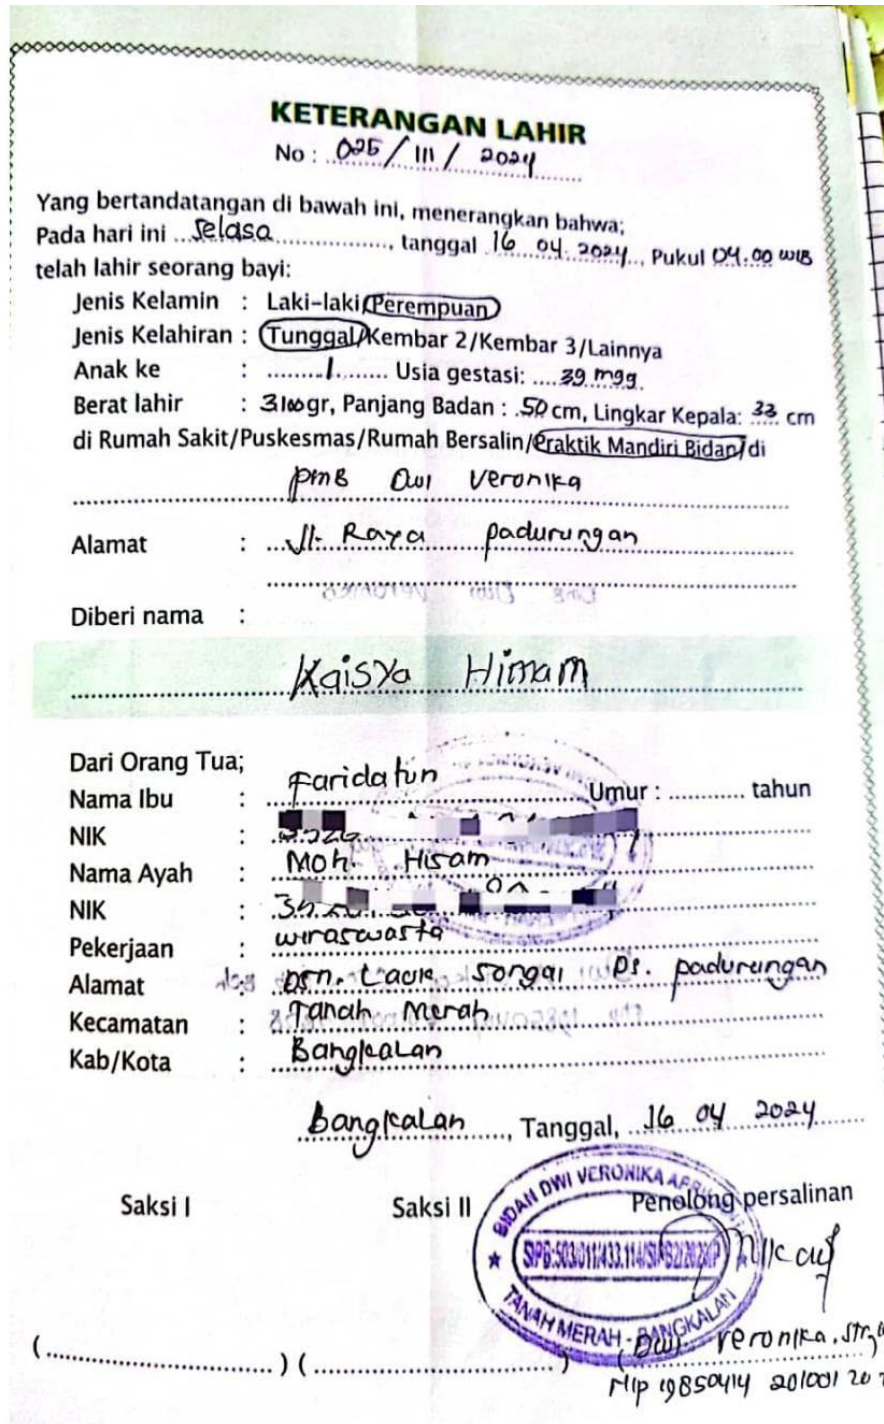 KETERANGAN LAHIR
No : 025/III/ 2024
Yang bertandatangan di bawah ini, menerangkan bahwa;
Pada hari ini Selasa, tanggal 16 04 2024, Pukul 04.00 WIB
telah lahir seorang bayi:
Jenis Kelamin : Laki-laki/Perempuan
Jenis Kelahiran : Tunggal/Kembar 2/Kembar 3/Lainnya
Anak ke : 1 Usia gestasi: 39 mgg
Berat lahir : 3100gr, Panjang Badan : 50 cm, Lingkar Kepala: 33 cm
di Rumah Sakit/Puskesmas/Rumah Bersalin/Praktik Mandiri Bidan/di
PMB Dwi Veronika
Alamat : Jl. Raya padurungan
Diberi nama :
Kaisya Himam
Dari Orang Tua;
Nama Ibu : Faridatun Umur : ........... tahun
NIK :
Nama Ayah : Moh. Hisam
NIK :
Pekerjaan : wiraswasta
Alamat : Dsn. Laok Songai Ds. padurungan
Kecamatan : Tanah Merah
Kab/Kota : Bangkalan
Bangkalan, Tanggal, 16 04 2024
Saksi I Saksi II Penolong persalinan
BIDAN DWI VERONIKA
TANAH MERAH - BANGKALAN
(....................) (....................) (Dwi Veronika.
Nip 19850414 201001 20